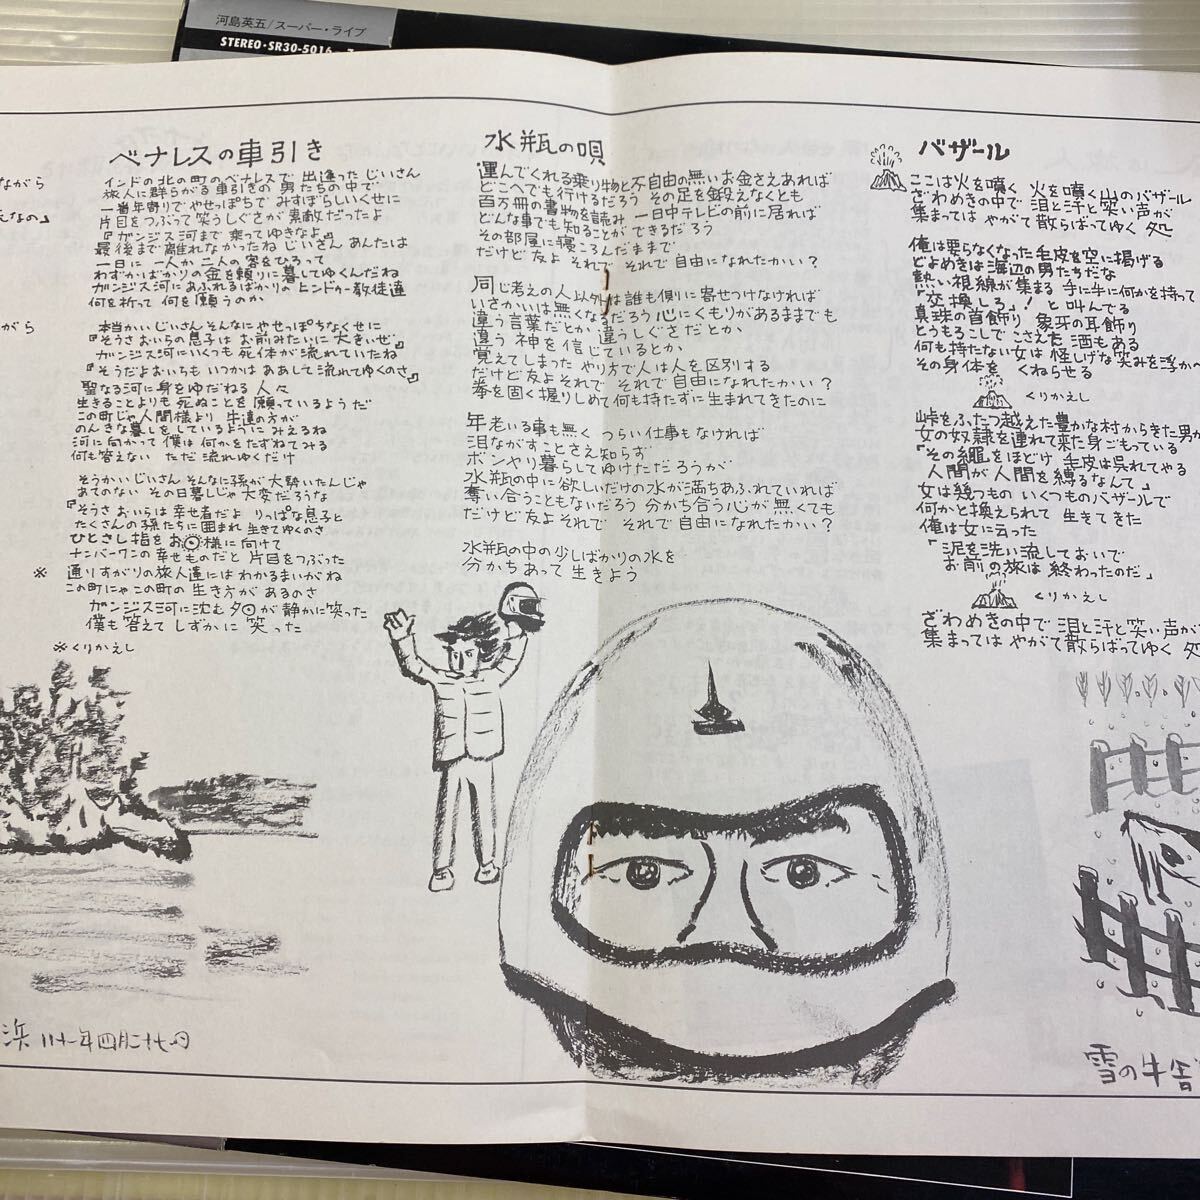 河島英五/スーパー・ライブ
STEREO・SR30-5016
ながら
えなの』
がら
ベナレスの車引き
インドの北の町のベナレスで 出逢った じいさん
旅人に群らがる車引きの 男たちの中で
一番年寄りで やせっぽちで みすぼらしいくせに
片目をつぶって笑うしぐさが 素敵だったよ
『ガンジス河まで 乗ってゆきなよ』
最後まで離れなかったね じいさん あんたは
一日に 一人か 二人の 客をひろって
わずかばかりの金を頼りに 暮してゆくんだね
ガンジス河にあふれるばかりの ヒンドゥー教徒達
何を祈って 何を願うのか
本当かい じいさん そんなに やせっぽちなくせに
『そうさ おいらの息子は お前みたいに 大きいぜ』
ガンジス河にいくつも 死体が 流れていたね
『そうだよおいらも いつかは ああして 流れてゆくのさ』
聖なる河に 身をゆだねる 人々
生きることよりも 死ぬことを 願っているようだ
この町じゃ 人間様より 牛達の方が
のんきな暮しをしているように みえるね
河に向かって 僕は 何かをたずねてみる
何も答えない ただ 流れゆくだけ
そうかい じいさん そんなに孫が 大勢いたんじゃ
あてのない その日暮しじゃ 大変だろうな
『そうさ おいらは 幸せ者だよ りっぱな息子と
たくさんの 孫たちに 囲まれ 生きてゆくのさ
ひとさし指を お☉様に 向けて
ナンバーワンの 幸せものだと 片目をつぶった
※ 通りすがりの旅人達には わかるまいがね
この町にゃ この町の 生き方が あるのさ
ガンジス河に沈む 夕☉が 静かに笑った
僕も 答えて しずかに 笑った
※くりかえし
水瓶の唄
運んでくれる乗り物と不自由の無いお金さえあれば
どこへでも 行けるだろう その足を鍛えなくとも
百万冊の書物を読み 一日中テレビの前に居れば
どんな事でも知ることができるだろう
その部屋に寝ころんだままで
だけど友よ それで それで自由になれたかい?
同じ考えの人以外は誰も側に寄せつけなければ
いさかいは無くなるだろう 心にくもりがあるままでも
違う言葉だとか 違うしぐさだとか
違う 神を信じているとか
覚えてしまった やり方で 人は人を区別する
だけど友よそれで それで自由になれたかい?
拳を固く握りしめて何も持たずに生まれてきたのに
年老いる事も無く つらい仕事もなければ
泪ながすことさえ知らず
ボンヤリ暮らしてゆけただろうが
水瓶の中に欲しいだけの水が満ちあふれていれば
奪い合うこともないだろう 分かち合う心が無くても
だけど友よそれで それで自由になれたかい?
水瓶の中の少しばかりの水を
分かちあって生きよう
バザール
ここは火を噴く 火を噴く山のバザール
ざわめきの中で 泪と汗と笑い声が
集まっては やがて散らばってゆく 処
俺は要らなくなった毛皮を空に揚げる
どよめきは海辺の男たちだな
熱い視線が集まる 手に手に何かを持って
「交換しろ」! と叫んでる
真珠の首飾り 象牙の耳飾り
とうもろこしでこさえた 酒もある
何も持たない女は怪しげな笑みを浮か
その身体を くねらせる
くりかえし
峠をふたつ越えた豊かな村からきた男が
女の奴隷を連れて来た身ごもっている
『その縄をほどけ 毛皮は呉れてやる
人間が人間を縛るなんて』
女は幾つもの いくつものバザールで
何かと換えられて 生きてきた
俺は女に云った
「泥を洗い流しておいで
お前の旅は 終わったのだ」
くりかえし
ざわめきの中で 泪と汗と笑い声が
集まっては やがて散らばってゆく 処
浜
雪の牛舎